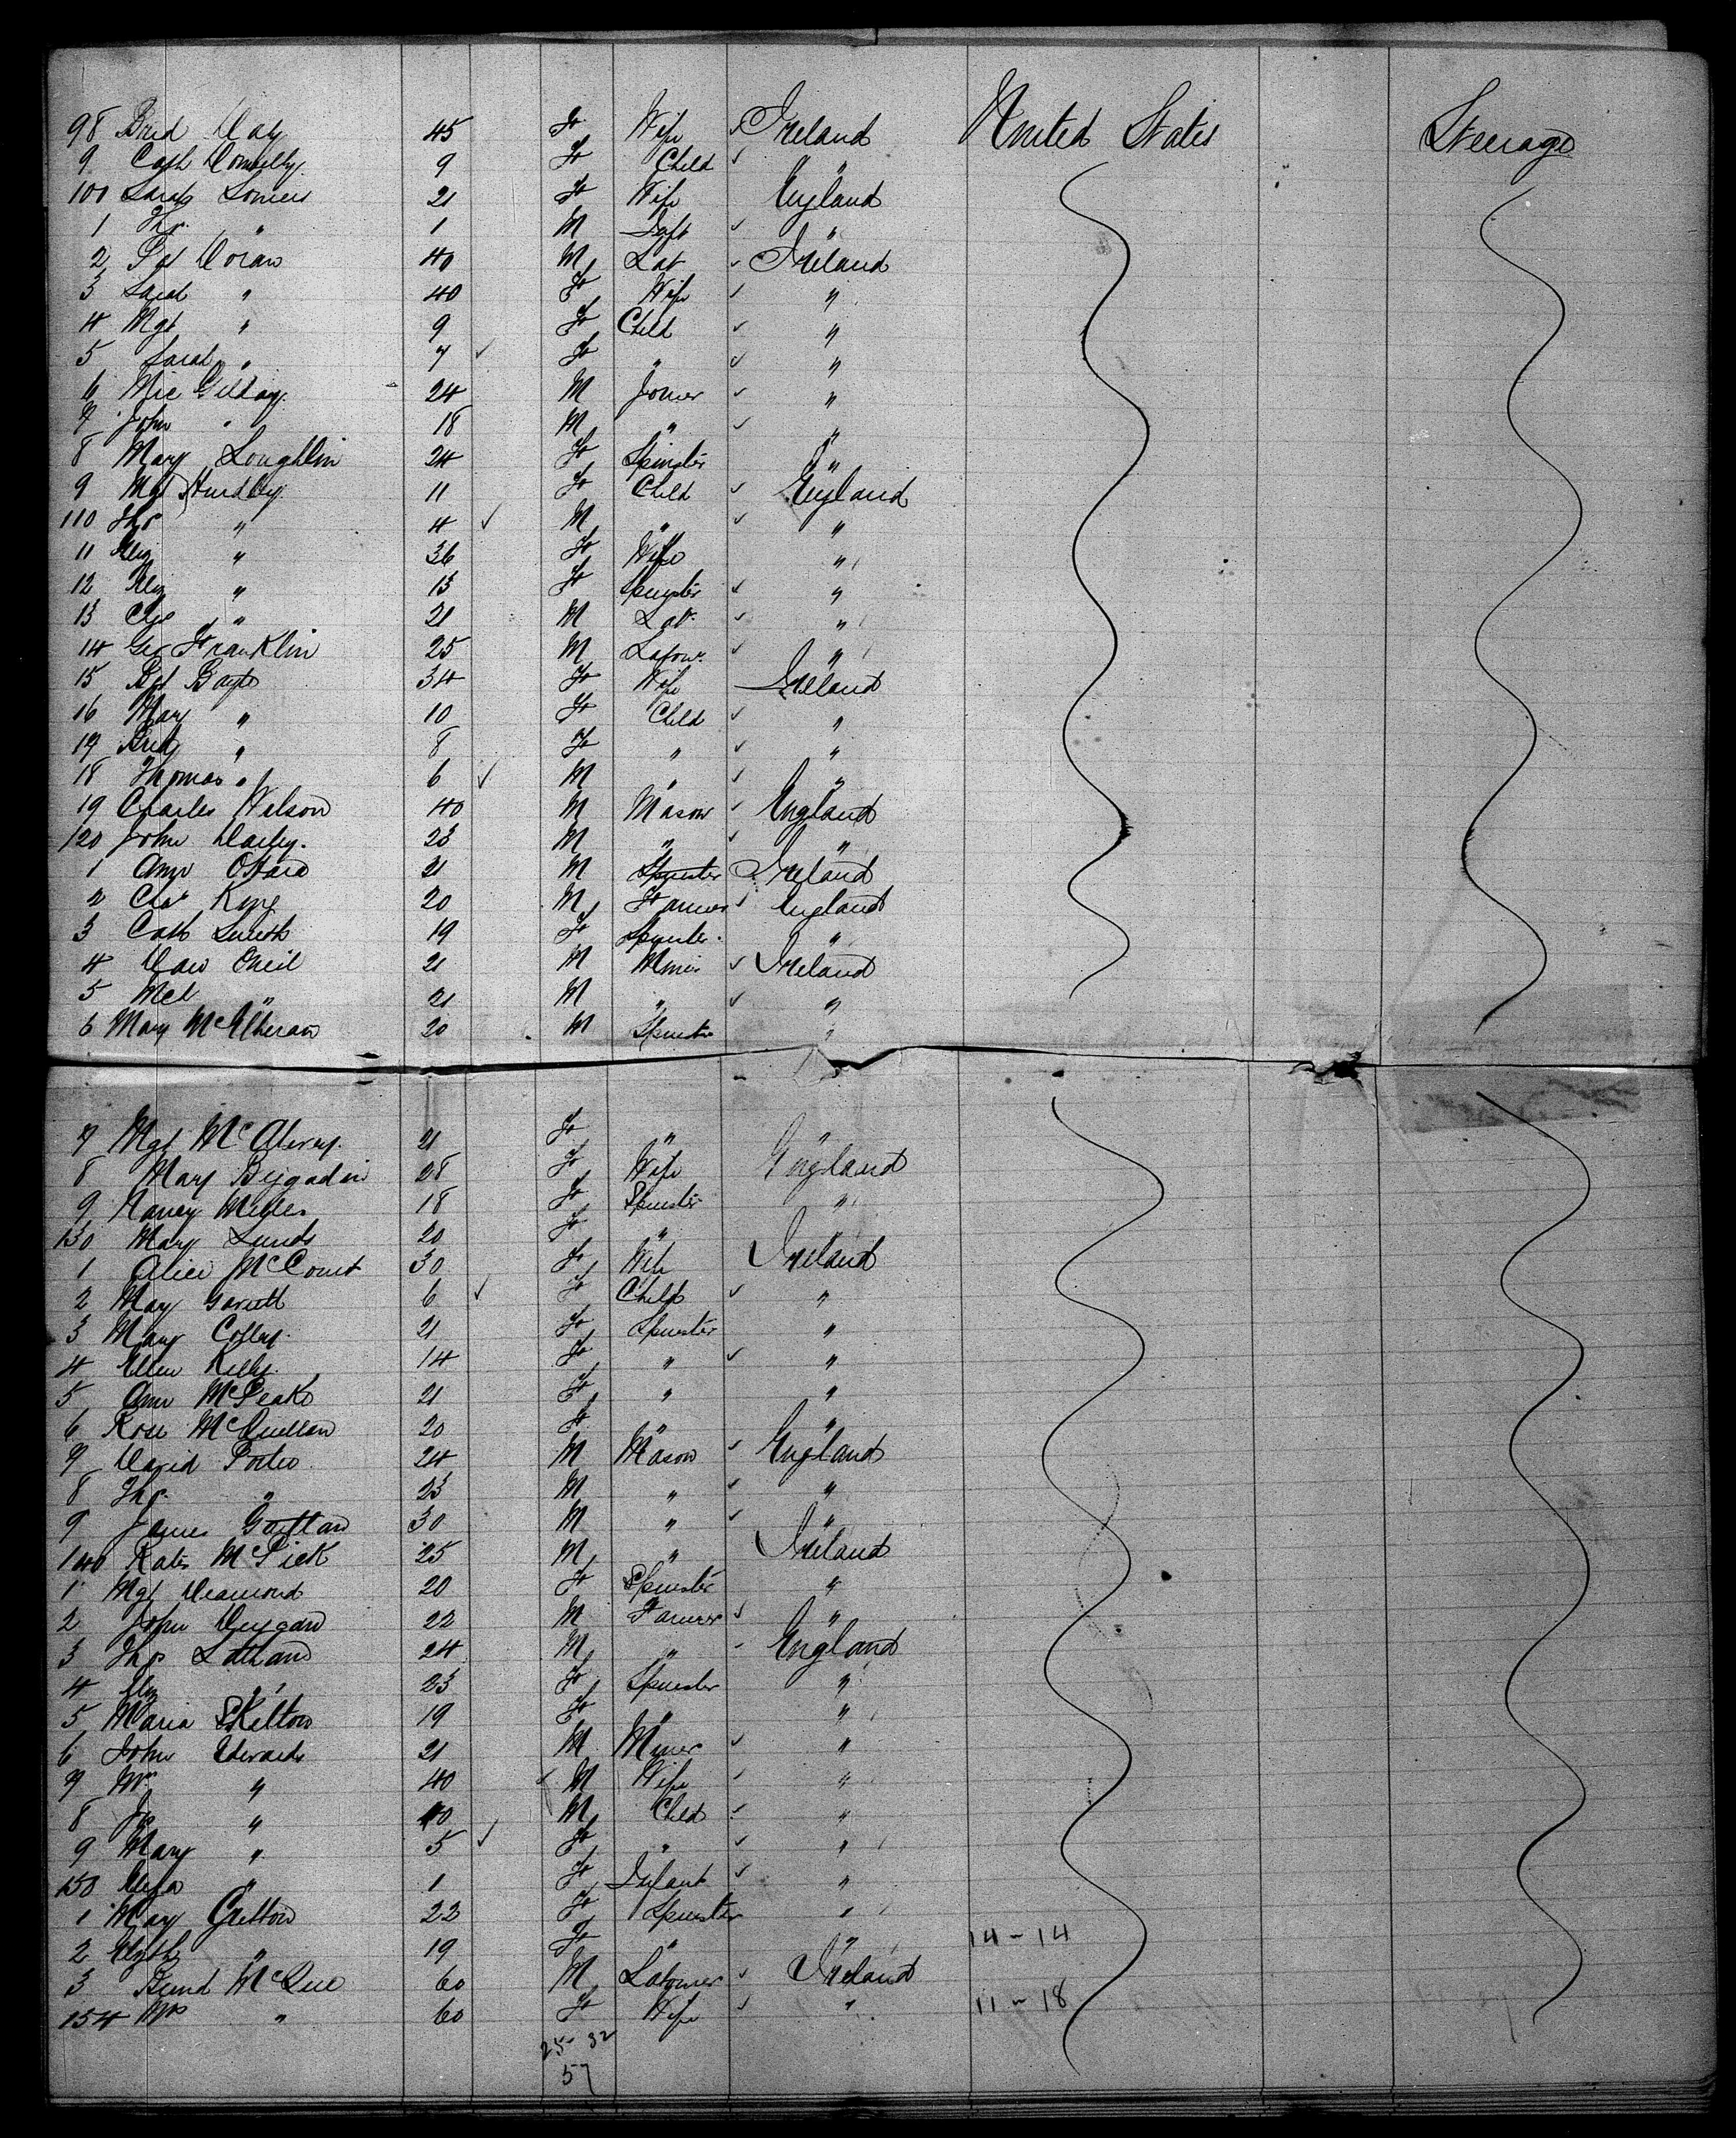 98 Brid Day 45 F Wife Ireland United States Steerage
9 Cath Connelly 9 F Child "
100 Sarah Somers 21 F Wife England
1 Thos " 1 M Inft "
2 Pat Doran 40 M Lab Ireland
3 Sarah " 40 F Wife "
4 Mgt " 9 F Child "
5 Sarah " 7 F " "
6 Mic Gilday 24 M Joiner "
7 John " 18 M " "
8 Mary Loughlin 24 F Spinster "
9 Mgt Hurdley 11 F Child England
110 Thos " 4 M " "
11 Eliz " 36 F Wife "
12 Eliz " 13 F Spinster "
13 " 21 M Lab "
14 Geo Franklin 25 M Labour "
15 Bgt 34 F Wife Ireland
16 Mary " 10 F Child "
17 Brid " 8 F " "
18 Thomas " 6 M " "
19 Charles Wilson 40 M Mason England
120 John Darby 23 M " "
1 Ann OHara 21 M Spinster Ireland
2 Chas King 20 M Farmer England
3 Cath Smith 19 F Spinster "
4 Dan Oneil 21 M Miner Ireland
5 Mcl " 21 M " "
6 Mary McElheran 20 M Spinster "
7 Mgt McAlevey 21 F " "
8 Mary 28 F Wife England
9 Nancy Miller 18 F Spinster "
130 Mary 20 F "
1 Alice McCourt 30 F Wife Ireland
2 Mary Garrett 6 F Child "
3 Mary Coffey 21 F Spinster "
4 Ellen Kelly 14 F " "
5 Ann McPeake 21 F " "
6 Rose McQuillan 20 F " "
7 David Porter 24 M Mason England
8 Thos " 23 M " "
9 James Grattan 30 M " "
140 Kate McPick 25 M " Ireland
1 Mgt Deamond 20 F Spinster "
2 John Duggan 22 M Farmer "
3 Thos Latham 24 M " England
4 Eliz " 23 F Spinster "
5 Maria Skelton 19 F " "
6 John Edwards 21 M Miner "
7 Mr " 40 M Wife "
8 Jn " 40 M Child "
9 Mary " 5 F " "
150 " 1 F Infant "
1 Mary Gretton 22 F Spinster "
2 Elizth " 19 F " " 14-14
3 Bernd McCue 60 M Labourer Ireland
154 Mrs " 60 F Wife " 11-18
25 32
57